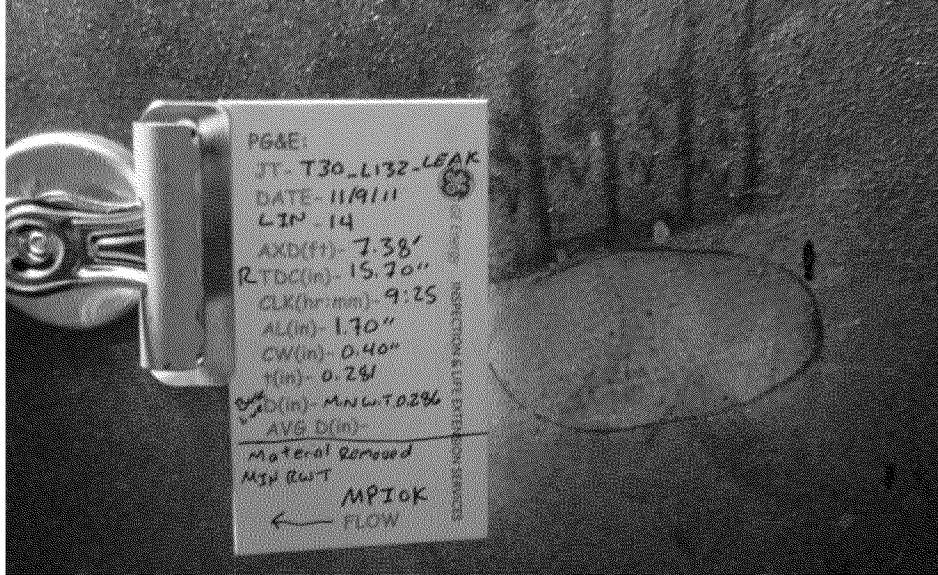 PG&E:
JT- T30_L132-LEAK
DATE- 11/9/11
LIN - 14
AXD(ft)- 7.38'
R TDC(in)- 15.70"
CLK(hr:mm)- 9:25
AL(in)- 1.70"
CW(in)- 0.40"
t(in)- 0.281
D(in)- M.N.W.T 0.286
AVG D(in)-
Material Removed
MIN RWT
MPI OK
← FLOW
INSPECTION & LIFE EXTENSION SERVICES